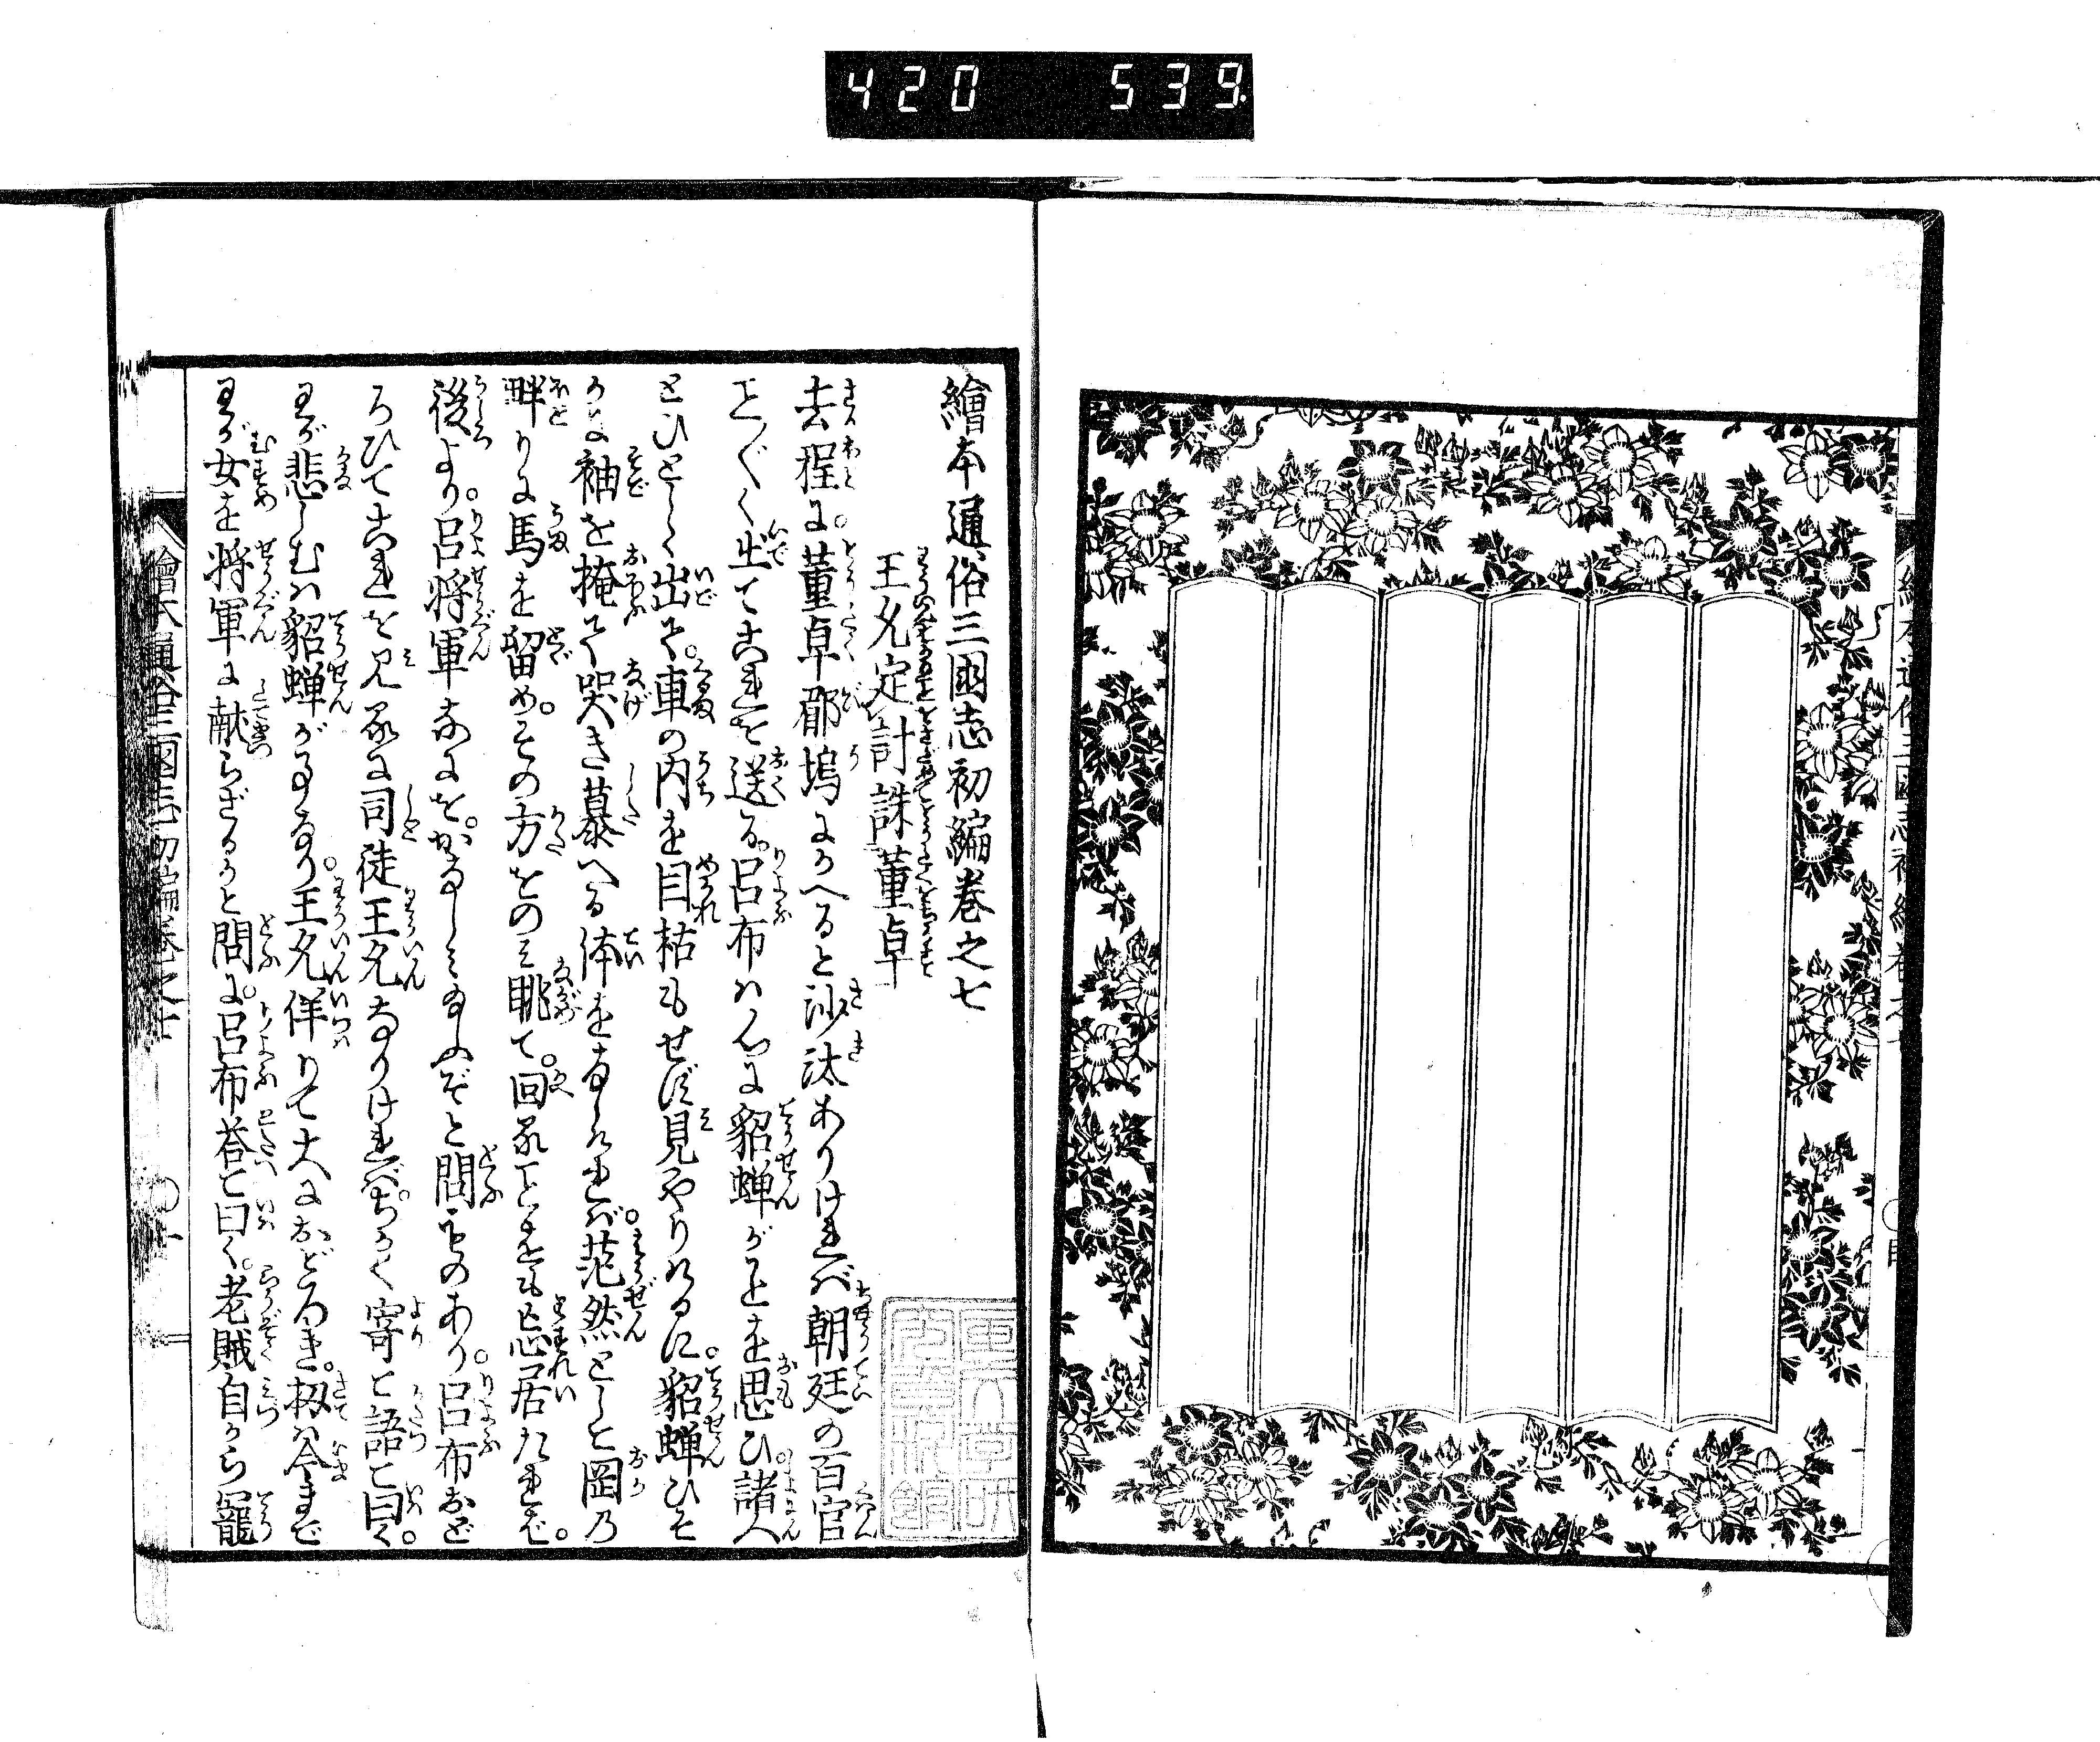 420 539
繪本通俗三國志初編巻之七
王允定計誅董卓
去程に。董卓郿塢にかへると沙汰ありければ朝廷の百官
こと〴〵く出てこれを送る。呂布は心に貂蝉がことを思ひ諸人
とひとしく出で。車の内を目枯もせず見やりけるに。貂蝉ひそ
かに袖を掩て哭き慕へる体をなしければ。茫然として岡の
畔りに馬を留め。その方をのみ眺て。回ることをも忘居たれば。
後より。呂将軍なにを。かなしみ給ふぞと問ものあり。呂布おど
ろひてこれを見るに司徒王允なりければ。ちかく寄て語て曰く。
わが悲しむは貂蝉が事なり。王允佯りて大におどろき。扨は今まで
わが女を将軍に献らざるかと問に。呂布荅て曰く。老賊自から寵
繪本通俗三國志初編巻之七